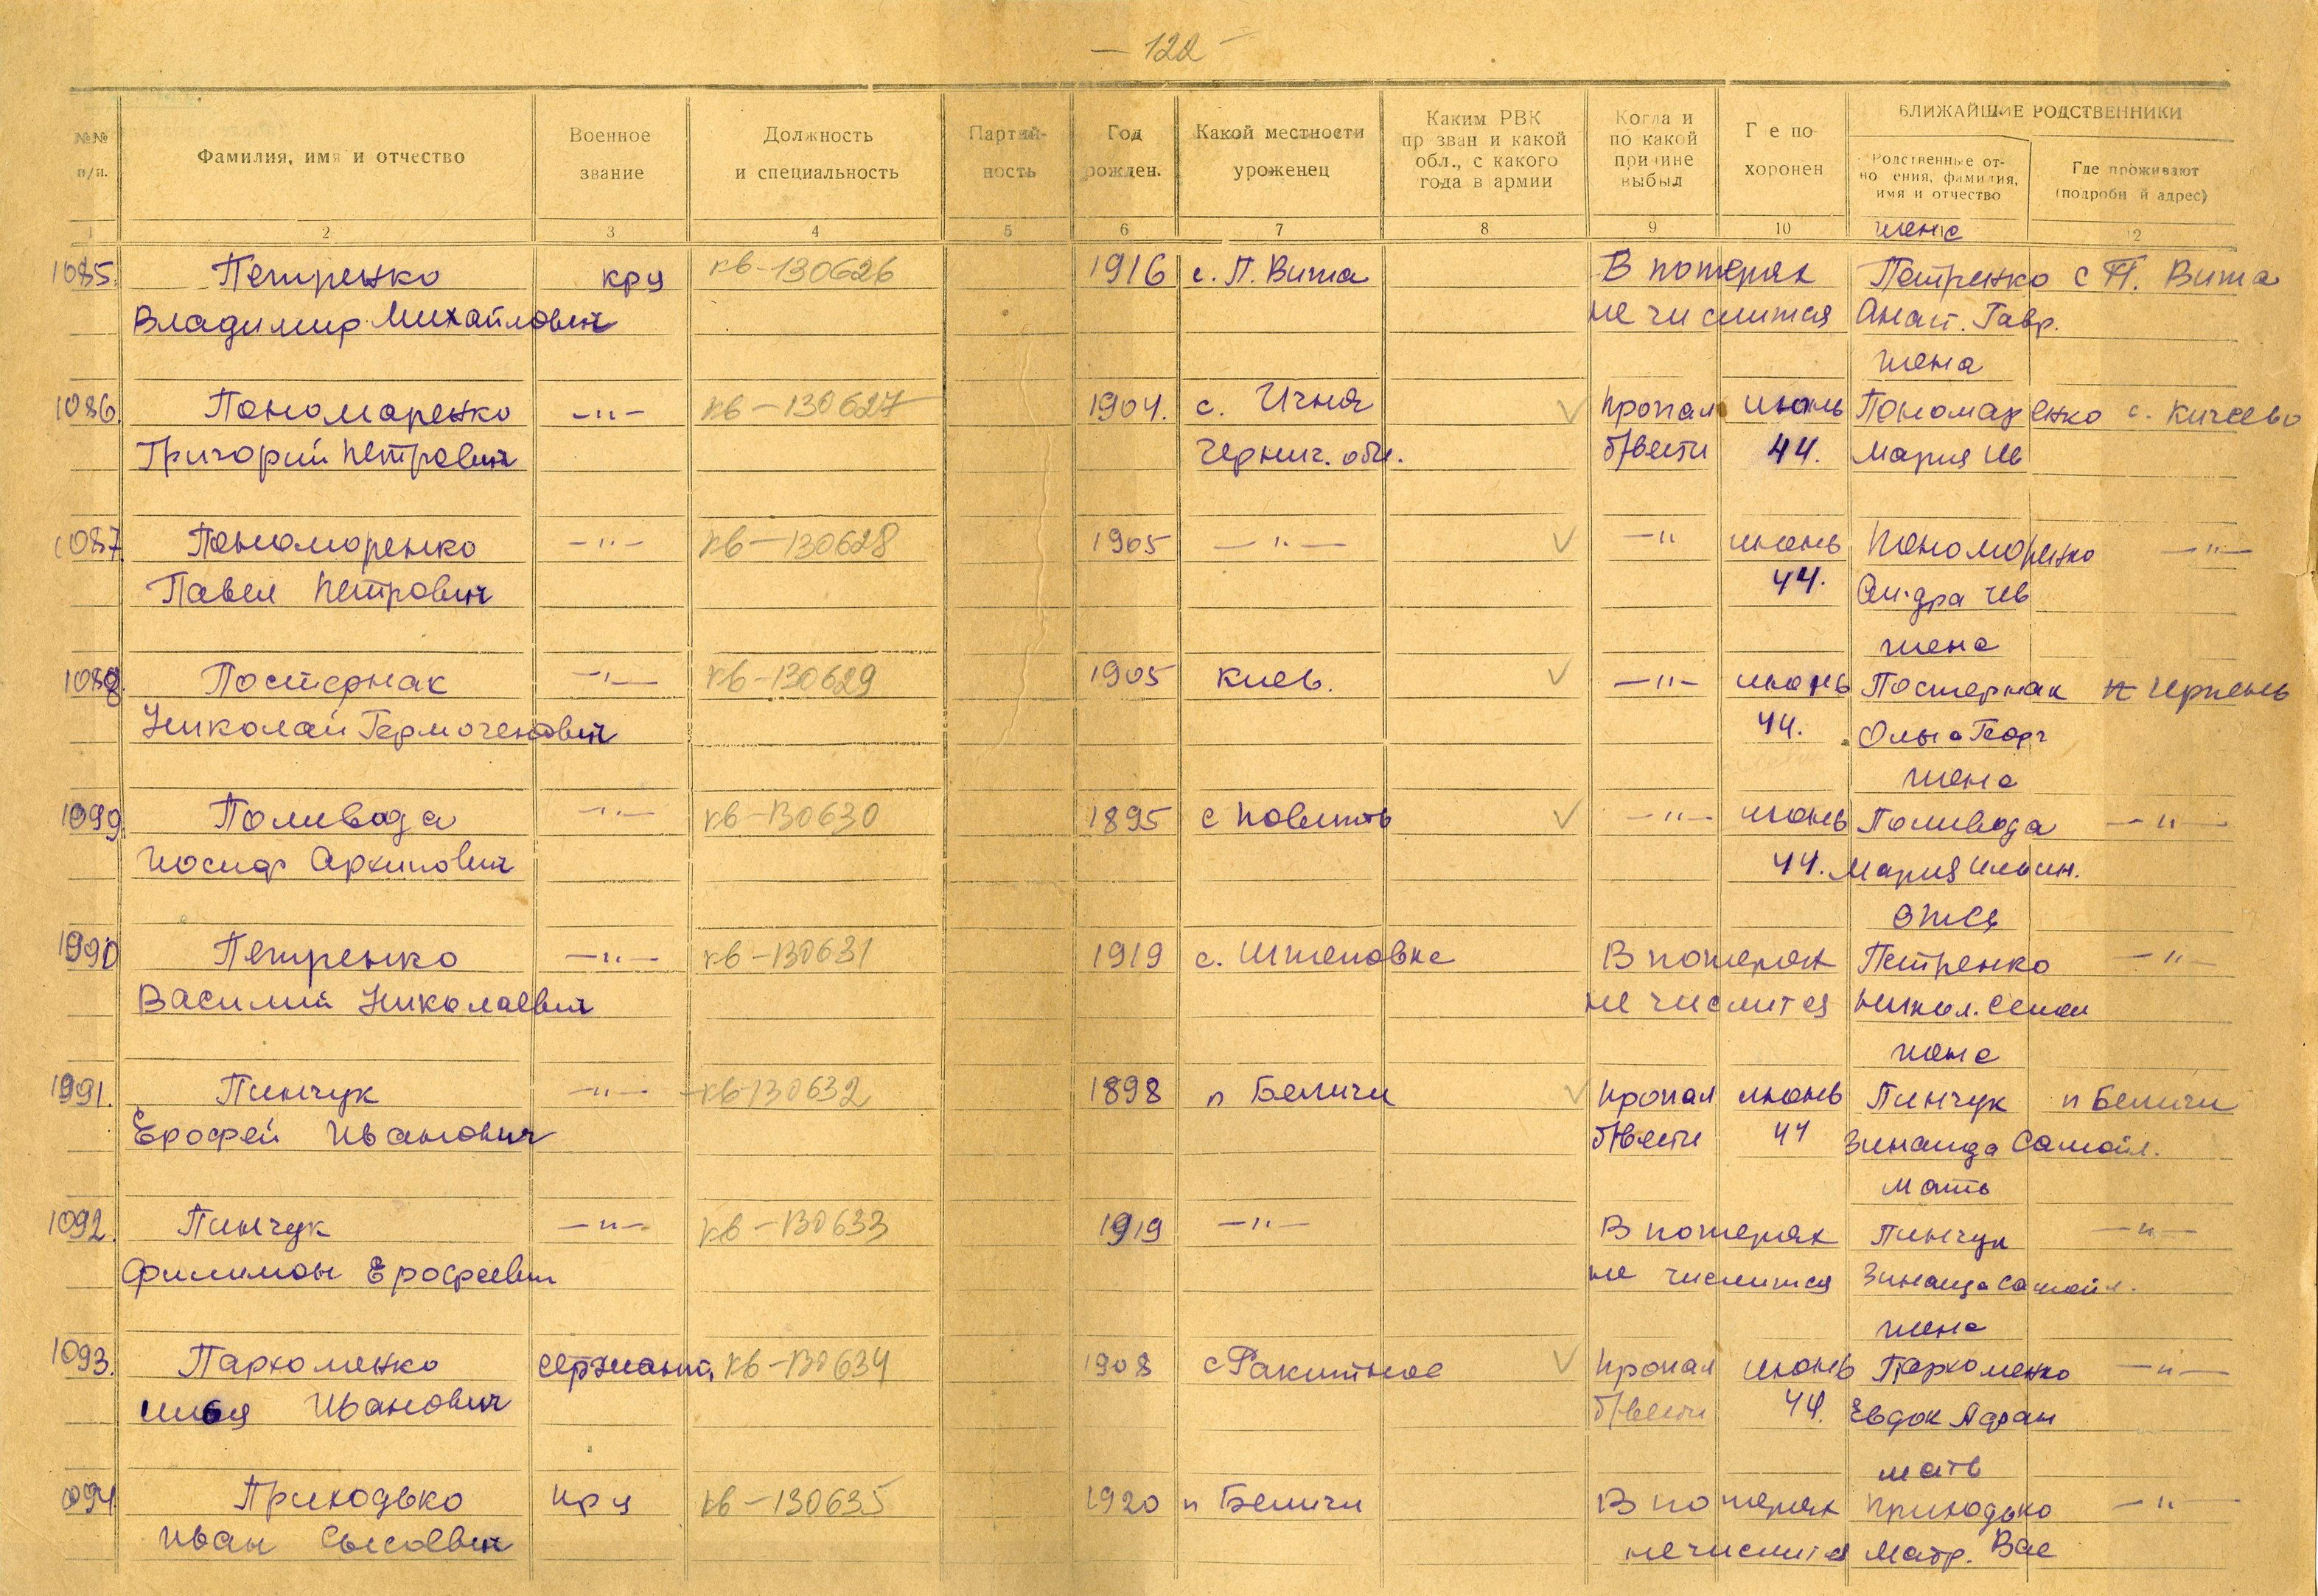 — 122 —
№№ п/п.
Фамилия, имя и отчество
Военное звание
Должность и специальность
Партий- ность
Год рожден.
Какой местности уроженец
Каким РВК пр зван и какой обл., с какого года в армии
Когда и по какой причине выбыл
Г е по хоронен
БЛИЖАЙШИЕ РОДСТВЕННИКИ
Родственные от- но ения, фамилия, имя и отчество
Где проживают (подробн й адрес)
1 2 3 4 5 6 7 8 9 10 12
жена
1085. Петренко кр-ц кв-130626 1916 с. П. Вита В потерях Петренко с П. Вита
Владимир Михайлович не числится Анаст. Гавр.
жена
1086. Пономаренко —"— кв-130627 1904. с. Ичня Пропал июнь Пономаренко с. Кичеево
Григорий Петрович Черниг. обл. б/вести 44. Мария Ив
1087. Пономоренко —"— кв-130628 1905 —"— —"— июнь Пономоренко —"—
Павел Петрович 44. Ал-дра Ив
жена
1088. Постернак —"— кв-130629 1905 Киев. —"— июнь Постернак п Ирпень
Николай Гермогенович 44. Ольга Георг
жена
1099. Поливода —"— кв-130630 1895 с —"— июнь Поливода —"—
Иосиф Архипович 44. Мария Ильин.
отец
1990 Петренко —"— кв-130631 1919 с. Штеповка В потерях Петренко —"—
Василий Николаевич не числится Никол. Семен
жена
1991. Пинчук —"— кв-130632 1898 п Беличи Пропал июнь Пинчук п Беличи
Ерофей Иванович б/вести 44 Зинаида Самойл.
мать
1092. Пинчук —"— кв-130633 1919 —"— В потерях Пинчук —"—
Филимон Ерофеевич не числится Зинаида Самойл.
жена
1093. Пархоменко сержант, кв-130634 1908 с Ракитное Пропал июнь Пархоменко —"—
Илья Иванович б/вести 44. Евдок Адам
мать
094 Приходько кр ц кв-130635 1920 п Беличи В потерях Приходько —"—
Иван Сысоевич не числится Матр. Вас